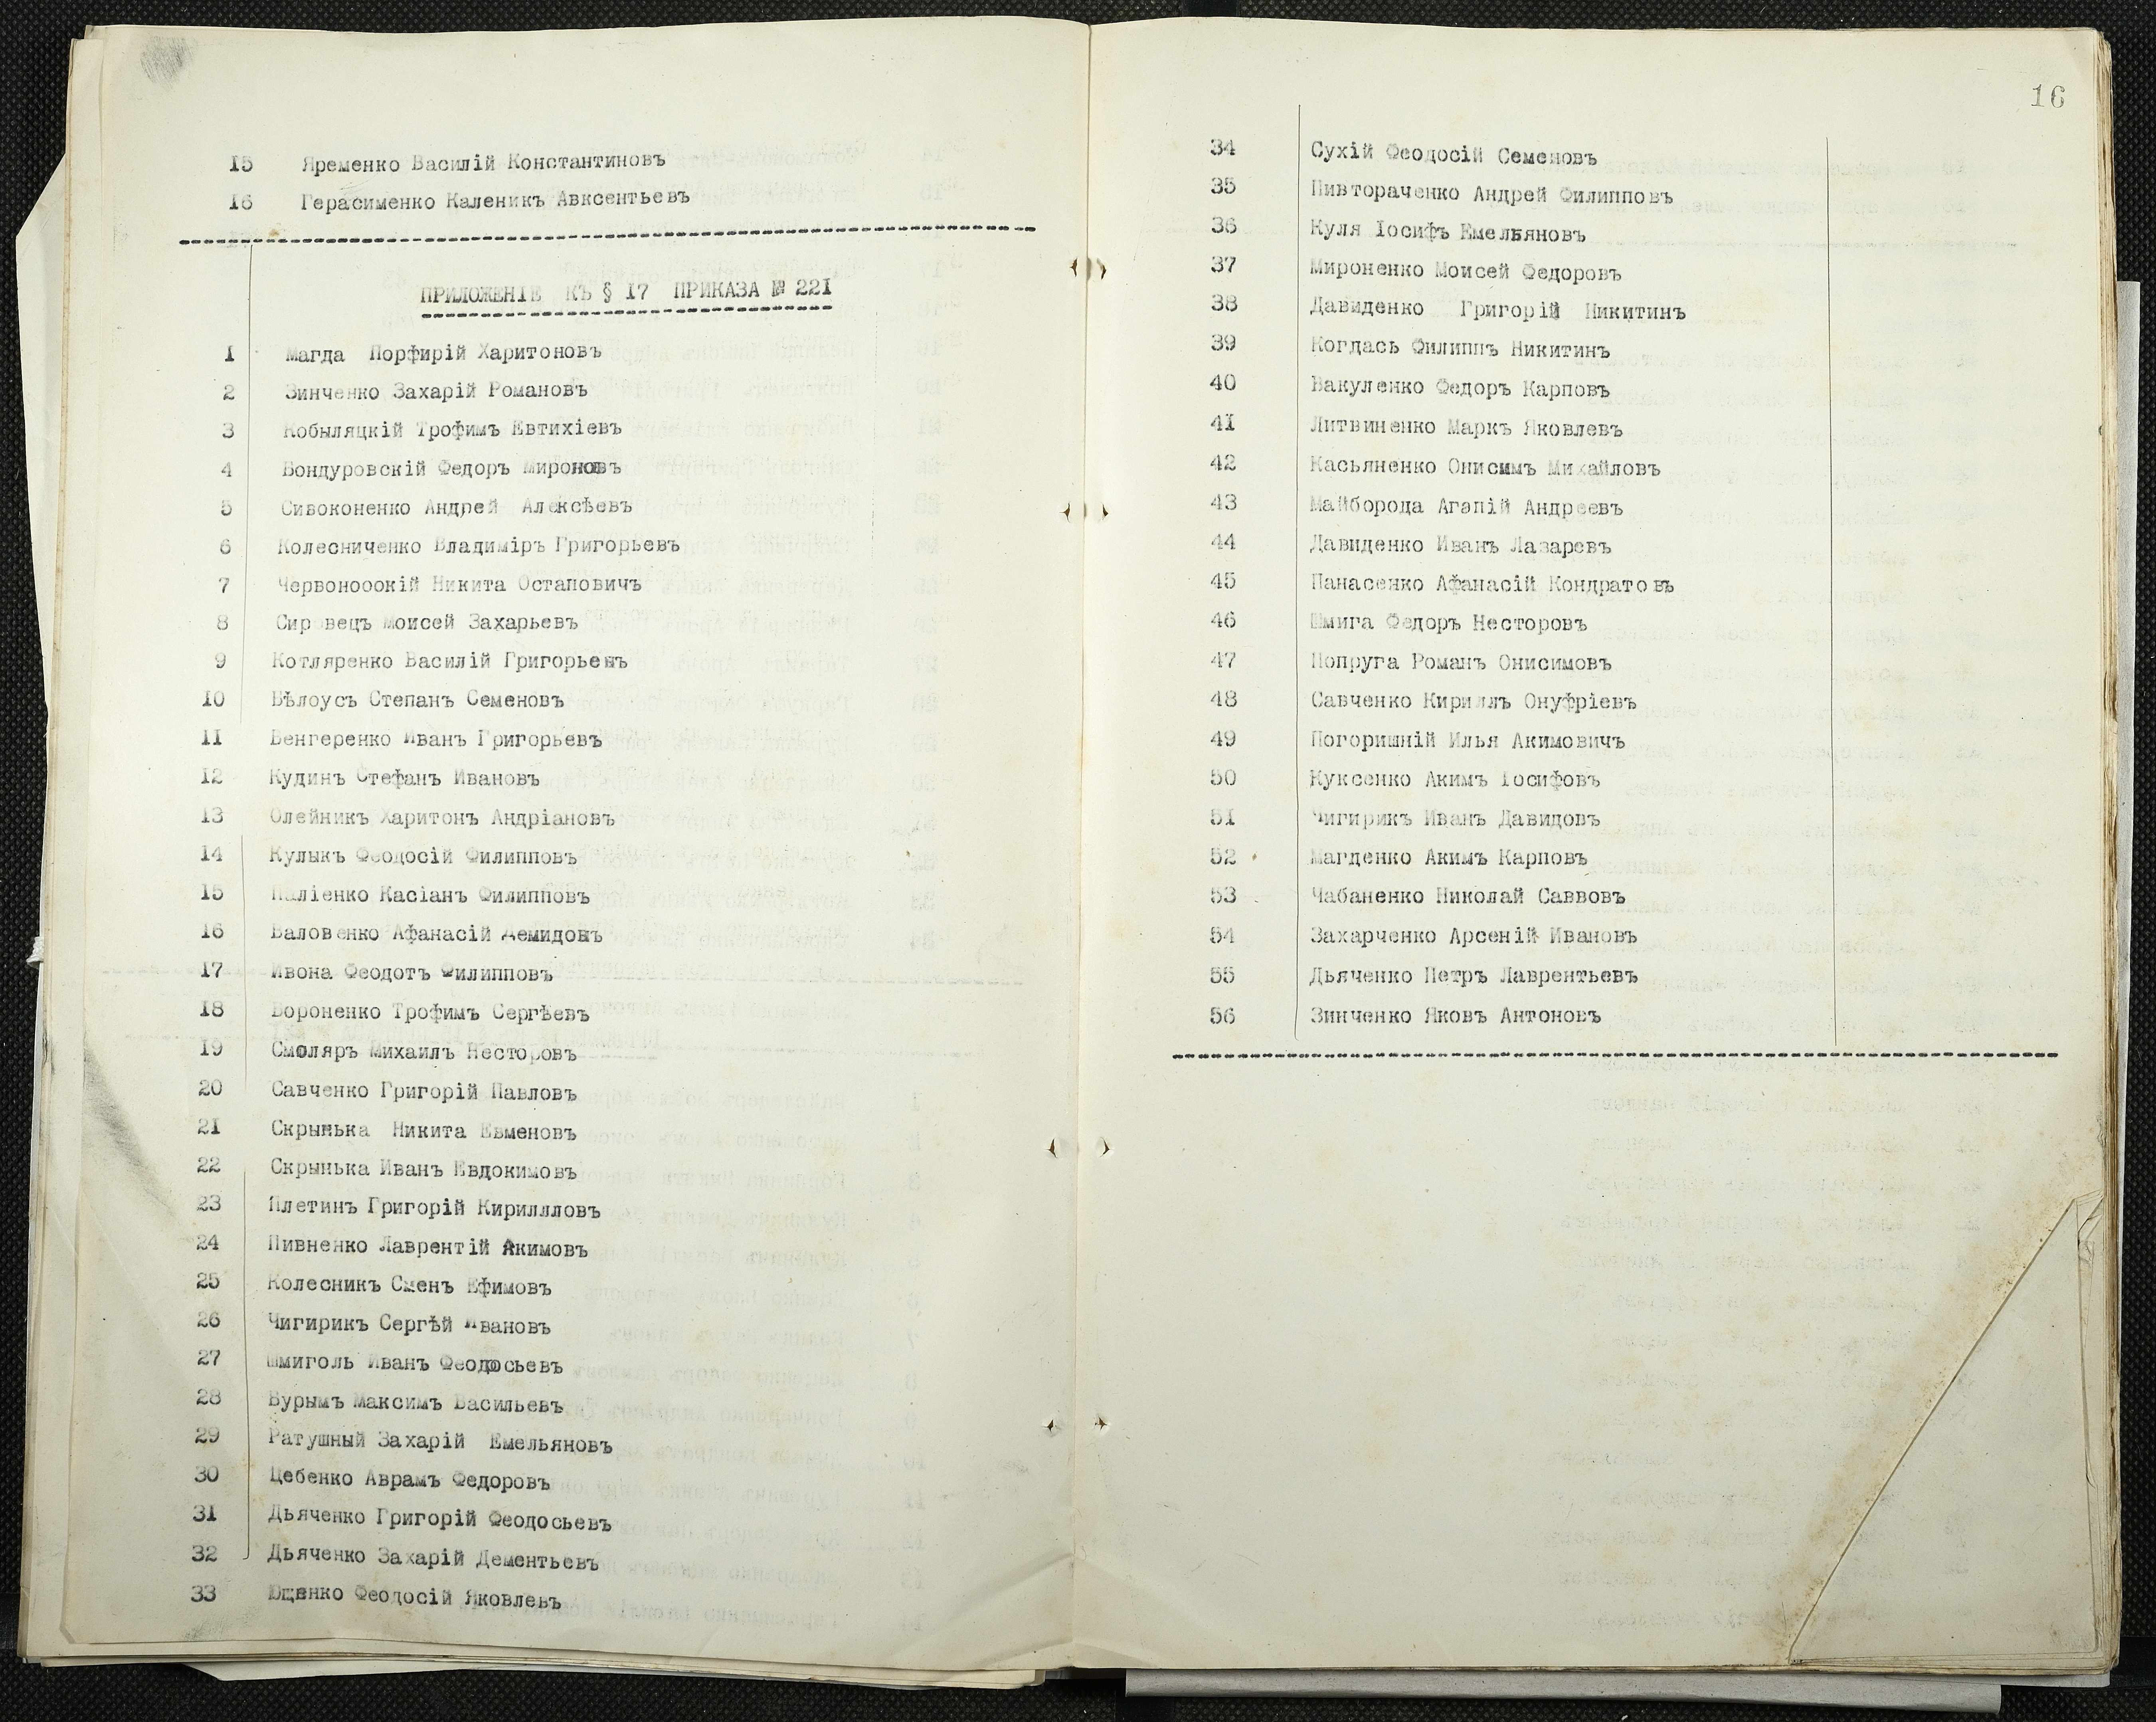 15 Яременко Василій Константиновъ
16 Герасименко Каленикъ Авксентьевъ
ПРИЛОЖЕНІЕ КЪ § 17 ПРИКАЗА № 221
1 Магда Порфирій Харитоновъ
2 Зинченко Захарій Романовъ
3 Кобыляцкій Трофимъ Евтихіевъ
4 Бондуровскій Федоръ Мироновъ
5 Сивоконенко Андрей Алексѣевъ
6 Колесниченко Владиміръ Григорьевъ
7 Червонооокій Никита Остаповичъ
8 Сировецъ Моисей Захарьевъ
9 Котляренко Василій Григорьевъ
10 Бѣлоусъ Степанъ Семеновъ
11 Венгеренко Иванъ Григорьевъ
12 Кудинъ Стефанъ Ивановъ
13 Олейникъ Харитонъ Андріановъ
14 Кулыкъ Феодосій Филипповъ
15 Паліенко Касіанъ Филипповъ
16 Баловенко Афанасій Демидовъ
17 Ивона Феодотъ Филипповъ
18 Вороненко Трофимъ Сергѣевъ
19 Смоляръ Михаилъ Несторовъ
20 Савченко Григорій Павловъ
21 Скрынька Никита Евменовъ
22 Скрынька Иванъ Евдокимовъ
23 Плетинъ Григорій Кирилловъ
24 Пивненко Лаврентій Акимовъ
25 Колесникъ Сменъ Ефимовъ
26 Чигирикъ Сергѣй Ивановъ
27 Шмиголь Иванъ Феодосьевъ
28 Бурымъ Максимъ Васильевъ
29 Ратушный Захарій Емельяновъ
30 Цебенко Аврамъ Федоровъ
31 Дьяченко Григорій Феодосьевъ
32 Дьяченко Захарій Дементьевъ
33 Ющенко Феодосій Яковлевъ
16
34 Сухій Феодосій Семеновъ
35 Пивтораченко Андрей Филипповъ
36 Куля Іосифъ Емельяновъ
37 Мироненко Моисей Федоровъ
38 Давиденко Григорій Никитинъ
39 Когдась Филиппъ Никитинъ
40 Вакуленко Федоръ Карповъ
41 Литвиненко Маркъ Яковлевъ
42 Касьяненко Онисимъ Михайловъ
43 Майборода Агапій Андреевъ
44 Давиденко Иванъ Лазаревъ
45 Панасенко Афанасій Кондратовъ
46 Шмига Федоръ Несторовъ
47 Попруга Романъ Онисимовъ
48 Савченко Кириллъ Онуфріевъ
49 Погоришній Илья Акимовичъ
50 Куксенко Акимъ Іосифовъ
51 Чигирикъ Иванъ Давидовъ
52 Магденко Акимъ Карповъ
53 Чабаненко Николай Саввовъ
54 Захарченко Арсеній Ивановъ
55 Дьяченко Петръ Лаврентьевъ
56 Зинченко Яковъ Антоновъ